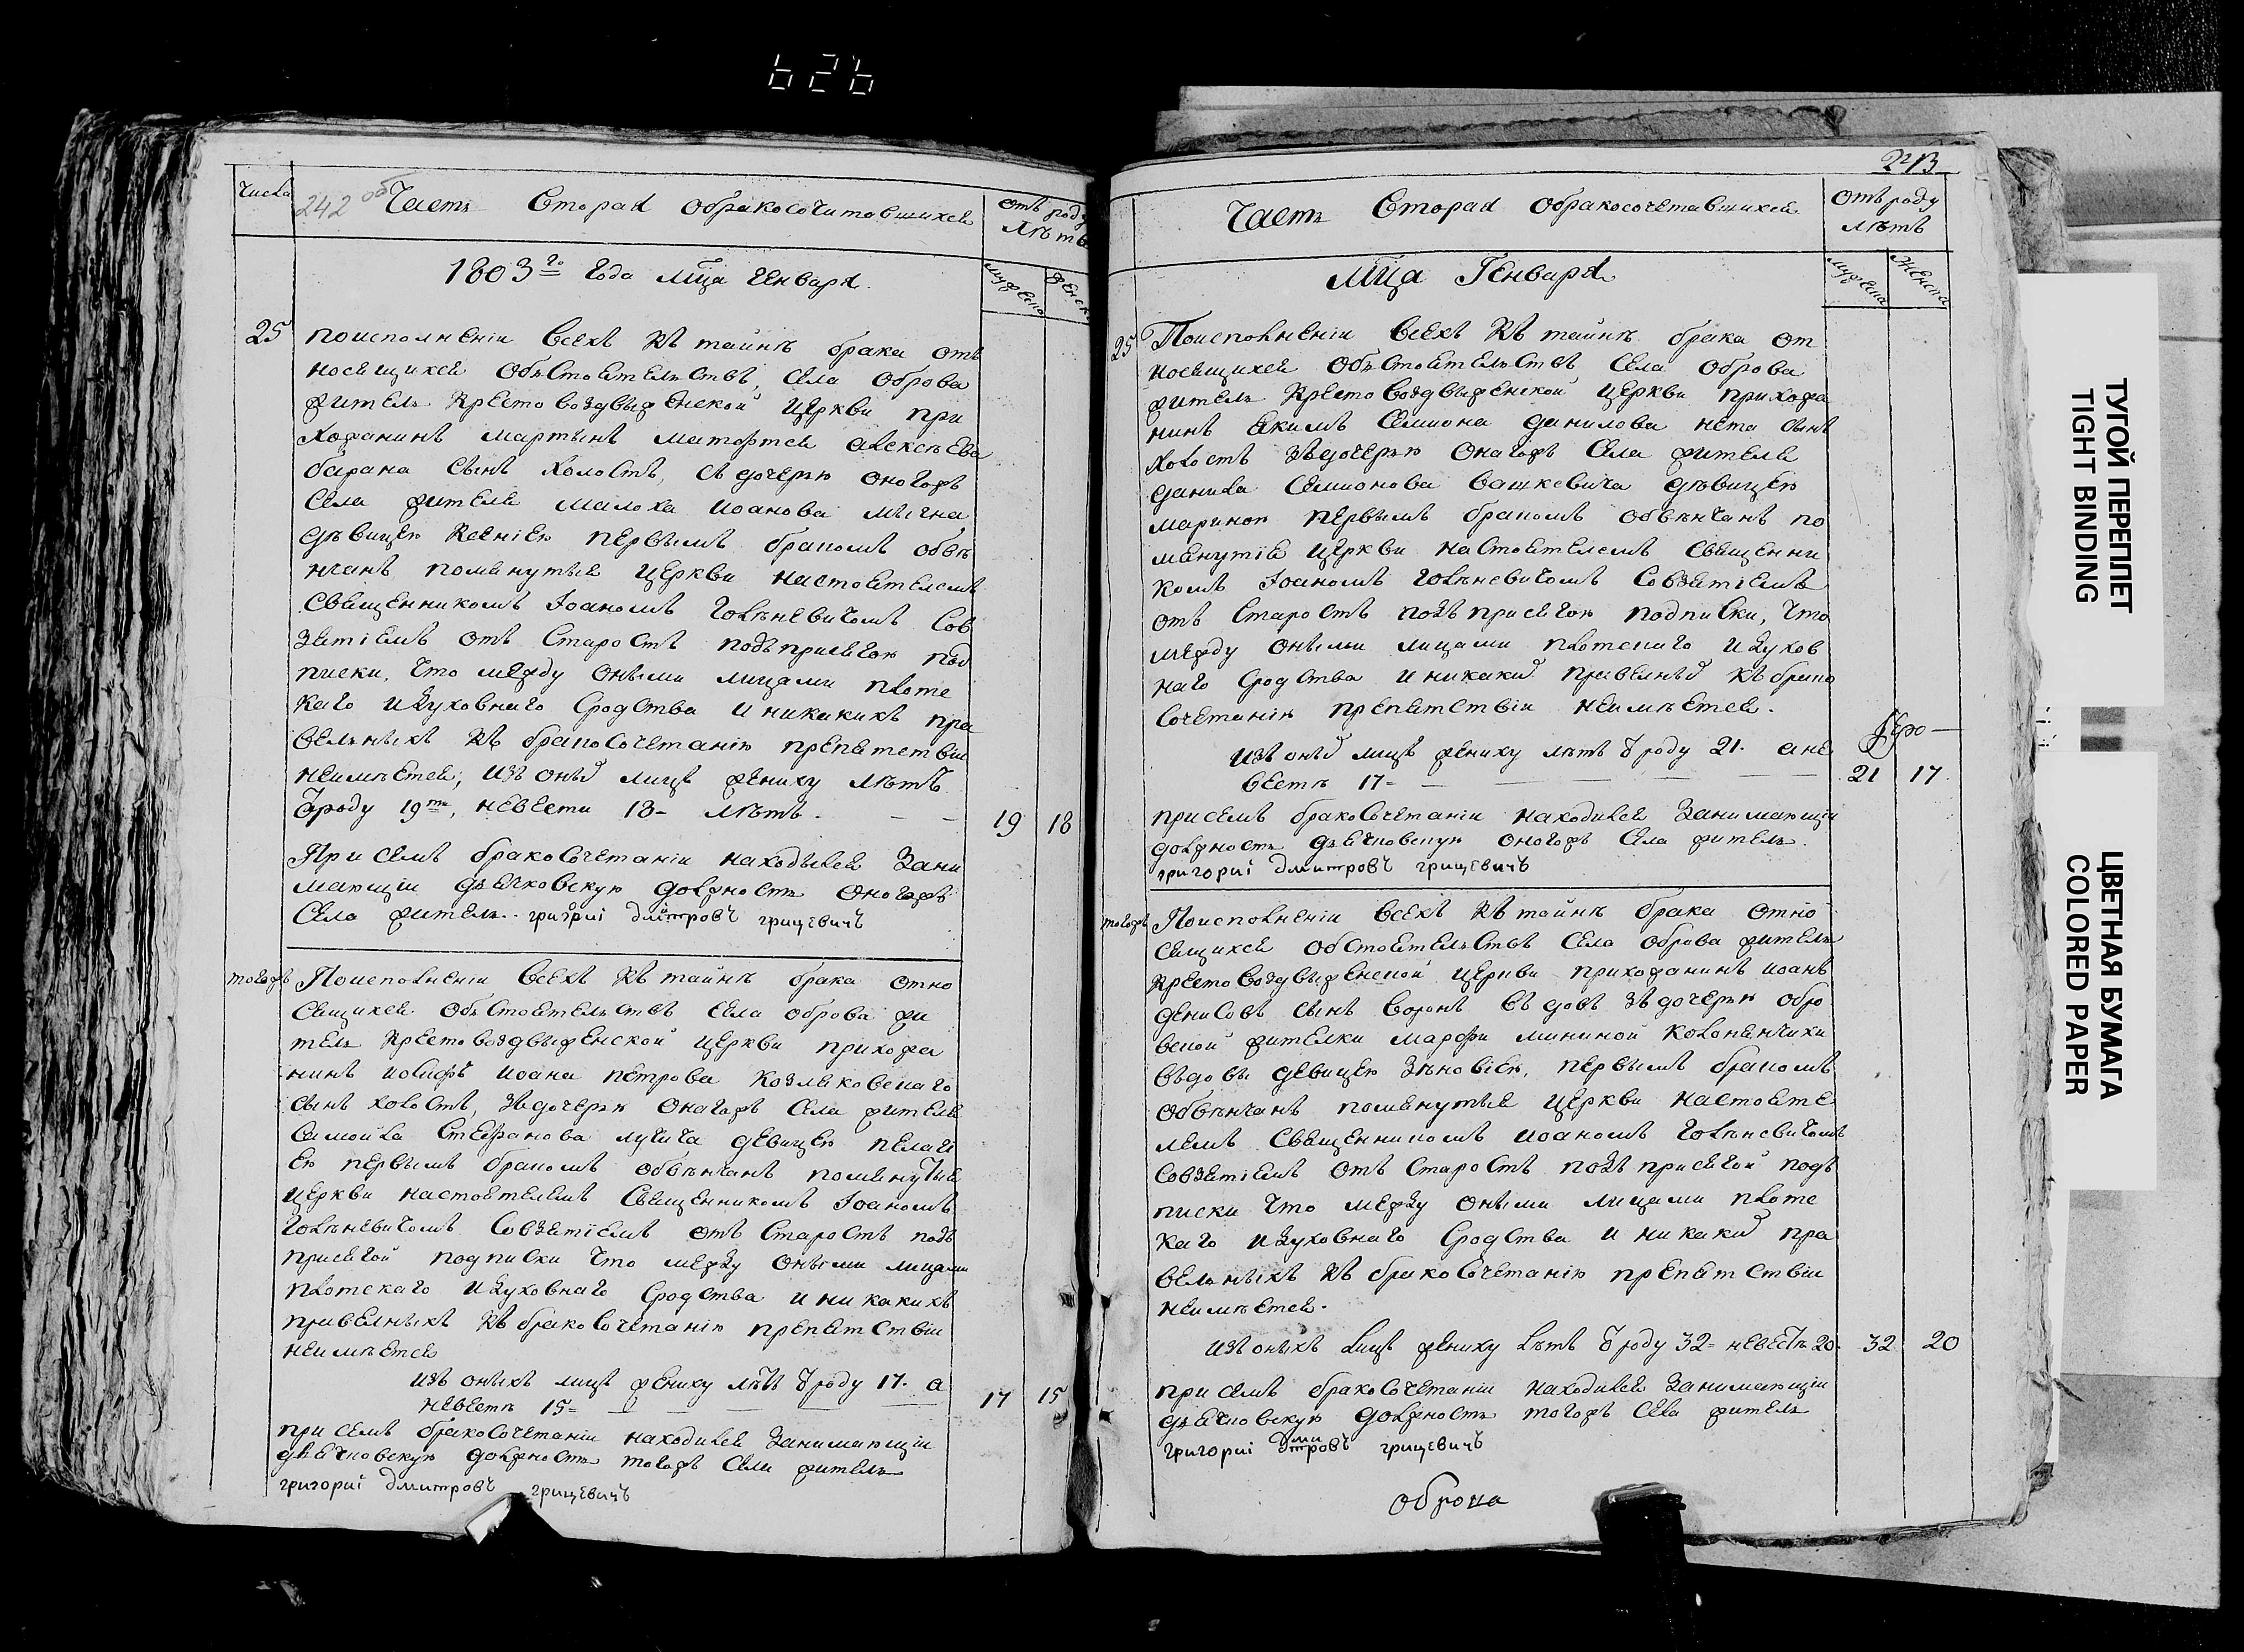 626
числа
242 об
Часть Вторая обракосочитавшихся
отъ роду
лѣтъ
1803го года мца генваря
мужеска
женска
25
поисполненіи всехъ къ тайнѣ брака отъ
носящихся объстоятельствъ, села оброва
житель крестовоздвыженской церкви при
хожанинъ мартынъ матфея алексѣева
барана сынъ холостъ, съ дочерью оногожъ
села жителя малоха иоанова мычна
дѣвицею ксениею первымъ бракомъ обвѣ
нчанъ помянутыя церкви настоятелемъ
священникомъ Іоаномъ голѣневичомъ Сов
зятіемъ отъ Старостъ подъприсягою под
писки, что между оными лицами плоте
каго идуховнаго Сродства и никакихъ пра
вельныхъ къ бракосочетанію препятствіи
неимѣется; изъ оныхъ лицъ жениху лѣтъ
ѿроду 19ть, невести 18- лѣтъ.
19 18
При семъ бракосочетаніи находылся Зани
мающіи дьячковскую должность оногожъ
Села житель. григориі дмитровъ грицевичъ
тогожъ
Поисполненіи всехъ къ тайнѣ брака отно
сящихся объстоятельствъ села оброва жи
тель крестовоздвыженской церкви прихожа
нинъ иосифъ иоана петрова козляковскаго
сынъ холостъ, здочерью онагожъ села жителя
самоила Стефанова лучича девицею пелаги
ею первымъ бракомъ обвѣнчанъ помянутыя
церкви настоятелемъ Священникомъ Іоаномъ
голѣневичомъ Совзятіемъ отъ Старостъ подъ
присягой подписки что между оными лицами
плотскаго идуховнаго Сродства и никакихъ
правелныхъ къ бракосочетанію препятствіи
неимѣется
изъ оныхъ лицъ жениху лѣтъ ѿроду 17. а
невестѣ 15=
17 15
при семъ бракосочетаніи находился занимающіи
дьячковскую должность тогожъ Села житель
григориі дмитровъ грицевичъ
243
Часть Вторая обракосочетавшихся
отъ роду
лѣтъ
мца Генваря
мужеска
женска
25
Поисполненіи всехъ къ тайнѣ брака от
носящихся объстоятельствъ Села оброва
житель крестовоздвыженской церкви прихожа
нинъ якимъ Семиона данилова нета сынъ
холостъ здочерью онагожъ Села жителя
данила Семионова вашкевича дѣвицею
мариною первымъ бракомъ обвѣнчанъ по
мянутія церкви настоятелемъ священни
комъ Іоаномъ голѣневичомъ Совзятіемъ
отъ Старостъ подъприсягою подписки, что
между оными лицами плотскаго идухов
наго Сродства и никаких правелных къ брако
сочетанію препятствіи неимѣется.
изъ оных лицъ жениху лѣтъ ѿроду 21. а не
вестѣ 17-
21 17
присемъ бракосочетаніи находился Занимающіи
должность дьячковскую оногожъ Села житель
григориі дмитровъ грицевичъ
тогожъ
Поисполненіи всехъ къ тайнѣ брака отно
сящихся обстоятельствъ Села оброва житель
крестовоздвыженской церкви прихожанинъ иоанъ
денисовъ сынъ воронъ въдовъ здочерью обро
вской жителки марфи мининой колонанчихи
въдовы девицею зѣновіею, первымъ бракомъ
обвѣнчанъ помянутыя церкви настояте
лемъ Священникомъ иоаномъ голѣневичомъ
совзятіемъ отъ Старостъ подъприсягой подъ
писки что между оными лицами плоте
каго идуховнаго Сродства и никаких пра
вельныхъ къ бракосочетанію препятствіи
неимѣется.
изъ оныхъ лицъ жениху лѣтъ ѿроду 32= невестѣ 20.
32 20
при семъ бракосочетаніи находился Занимающіи
дьячковскую должность тогожъ Села житель
григориі дмитровъ грицевичъ
оброва
ТУГОЙ ПЕРЕПЛЕТ
TIGHT BINDING
ЦВЕТНАЯ БУМАГА
COLORED PAPER